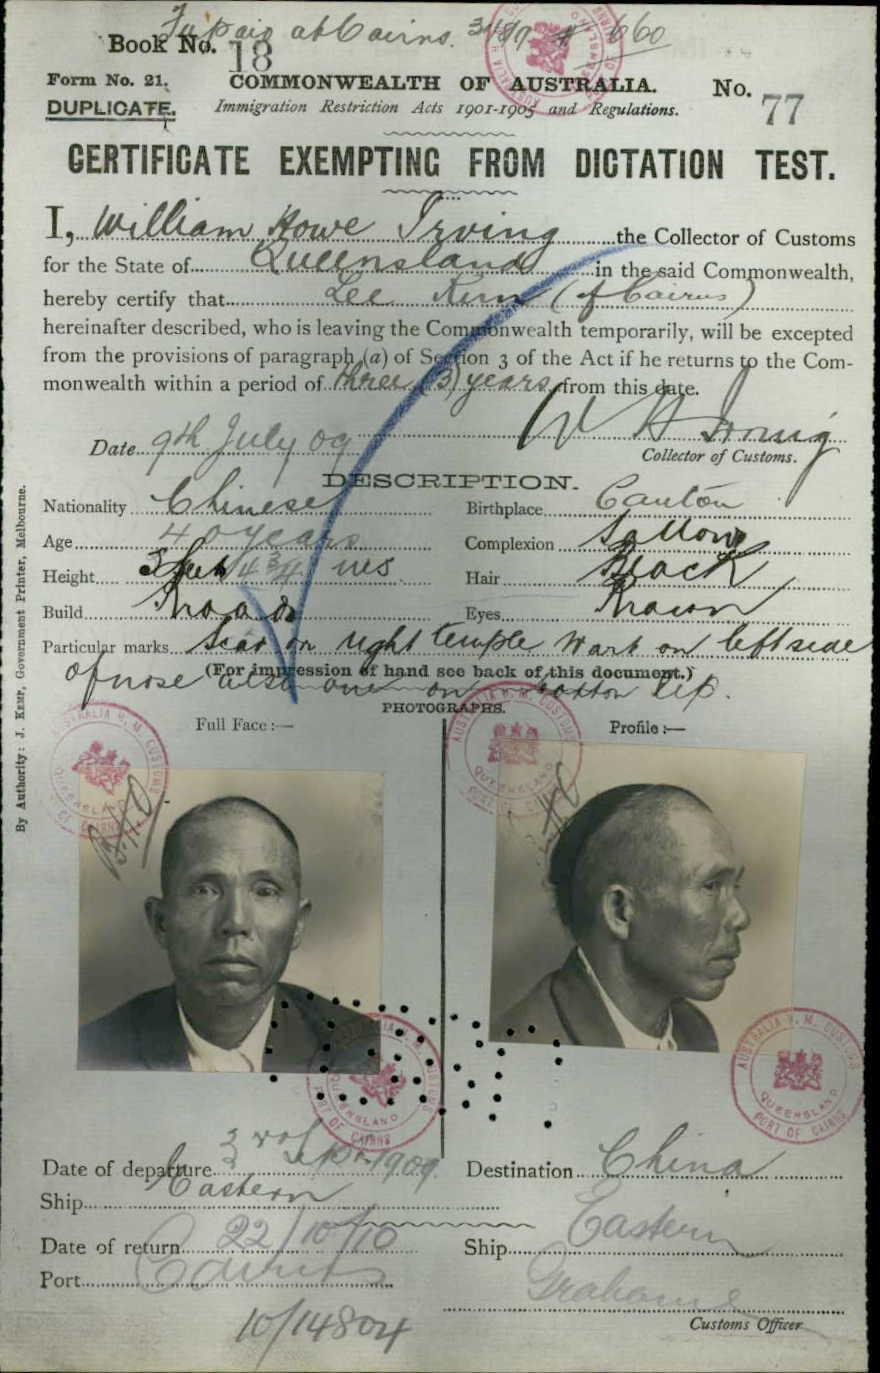 Fee paid at Cairns. 3/9/9 # 660
Book No. 18
Form No. 21. COMMONWEALTH OF AUSTRALIA. No. 77
DUPLICATE. Immigration Restriction Acts 1901-1905 and Regulations.
CERTIFICATE EXEMPTING FROM DICTATION TEST.
I, William Howe Irving the Collector of Customs
for the State of Queensland in the said Commonwealth,
hereby certify that Lee Kum (of Cairns)
hereinafter described, who is leaving the Commonwealth temporarily, will be excepted
from the provisions of paragraph (a) of Section 3 of the Act if he returns to the Com-
monwealth within a period of three (3) years from this date.
W H Irving
Date 9th July 09 Collector of Customs.
DESCRIPTION.
Nationality Chinese Birthplace Canton
Age 40 years Complexion Sallow
Height 5 feet 4 3/4 ins Hair Black
Build Broad Eyes Brown
Particular marks Scar on right temple Wart on left side
(For impression of hand see back of this document.)
of nose also one on bottom lip.
PHOTOGRAPHS.
Full Face :— Profile :—
AUSTRALIA H. M. CUSTOMS
QUEENSLAND
PORT OF CAIRNS
Date of departure 3rd Sept 1909 Destination China
Ship Eastern
Date of return 22/10/10 Ship Eastern
Port Cairns
Customs Officer
10/14804
By Authority: J. KEMP, Government Printer, Melbourne.